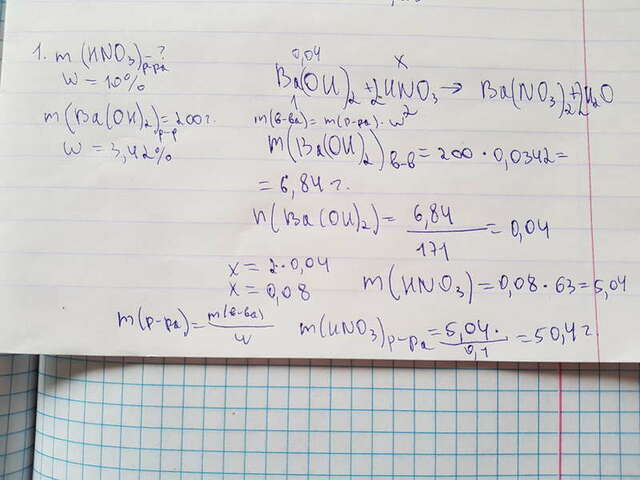 1. m (HNO3)р-ра = ?
W = 10%
m(Ba(OH)2)р-р = 200г.
W = 3,42%
0,04 x
Ba(OH)2 + 2HNO3 → Ba(NO3)2 + 2H2O
1 2
m(в-ва) = m(р-ра) · w
m(Ba(OH)2)в-в = 200 · 0,0342 =
= 6,84 г.
n(Ba(OH)2) = 6,84 / 171 = 0,04
x = 2·0,04
x = 0,08
m(HNO3) = 0,08 · 63 = 5,04
m(р-ра) = m(в-ва) / w
m(HNO3)р-ра = 5,04 / 0,1 = 50,4 г.